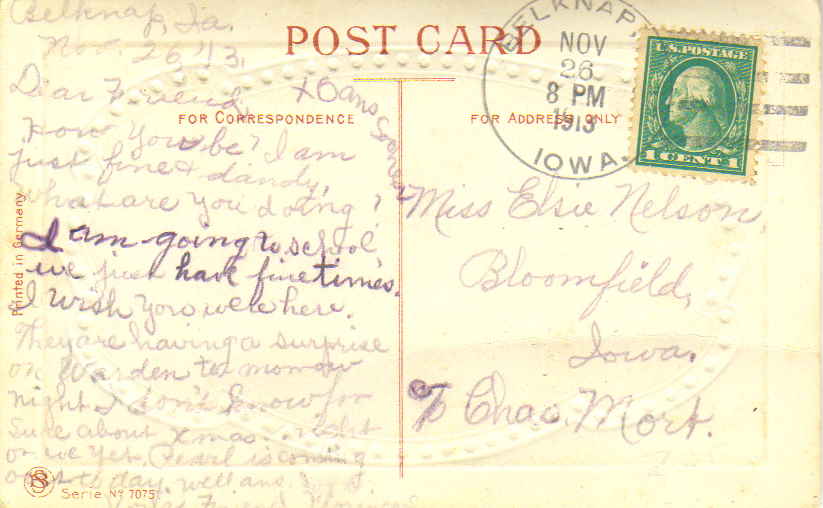 Belknap, Ia.
Nov. 26 '13.
Dear Friend,
How you be? I am
just fine & dandy.
What are you doing?
I am going to school
we just have fine times.
I wish you were here.
They are having a surprise
on Warden to morrow
night I don't know for
sure about Xmas.
or we yet. Pearl is coming
out to day. well ans.
Friend
ans sooner
POST CARD
FOR CORRESPONDENCE
FOR ADDRESS ONLY
BELKNAP,
NOV
26
8 PM
1913
IOWA.
U.S. POSTAGE
1 CENT 1
Miss Elsie Nelson
Bloomfield,
Iowa.
% Chas. Mort.
Printed in Germany
Serie No 7075